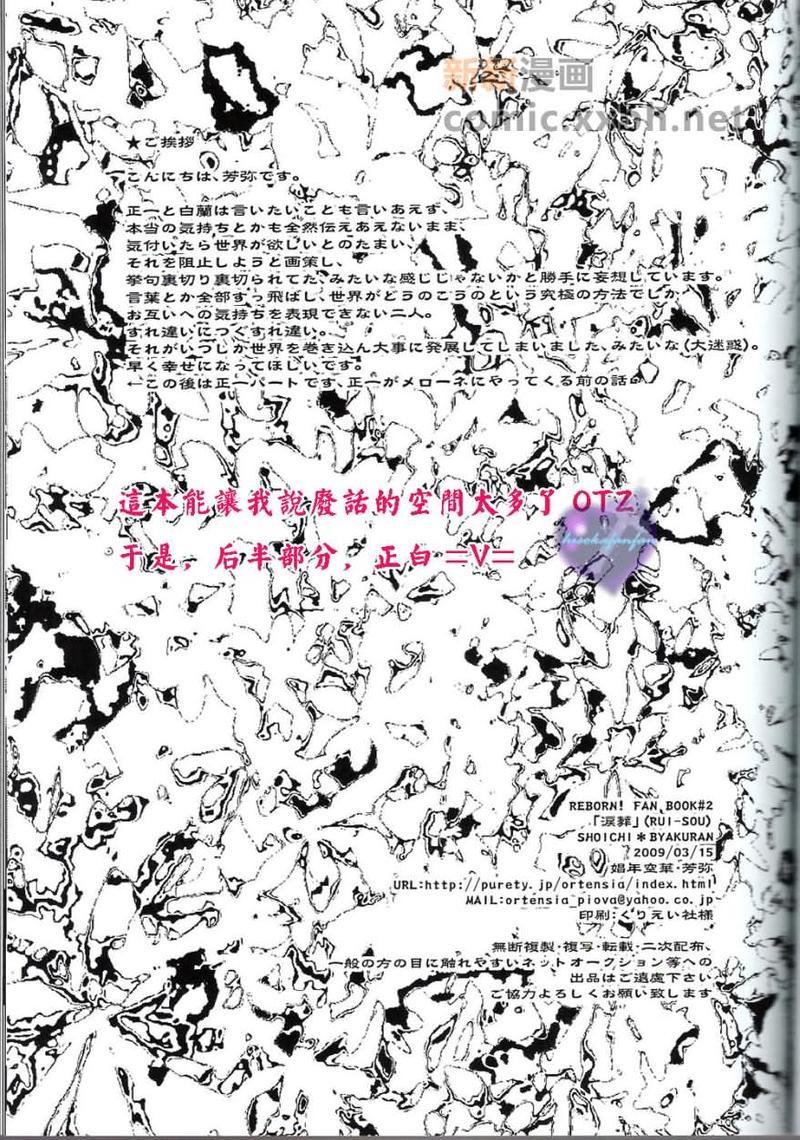 新新漫画
comic.xxbh.net
★ご挨拶
こんにちは、芳弥です。
正一と白蘭は言いたいことも言いあえず、
本当の気持ちとかも全然伝えあえないまま、
気付いたら世界が欲しいとのたまい、
それを阻止しようと画策し、
挙句裏切り裏切られてた、みたいな感じじゃないかと勝手に妄想しています。
言葉とか全部すっ飛ばし、世界がどうのこうのという究極の方法でしか
お互いへの気持ちを表現できない二人。
すれ違いにつぐすれ違い。
それがいつしか世界を巻き込ん大事に発展してしまいました、みたいな(大迷惑)。
早く幸せになってほしいです。
←この後は正一パートです、正一がメローネにやってくる前の話。
這本能讓我說廢話的空間太多了 OTZ
于是，后半部分，正白 =V=
hisokafanfan
REBORN! FAN BOOK#2
「涙葬」(RUI-SOU)
SHOICHI＊BYAKURAN
2009/03/15
娼年空華・芳弥
URL:http://purety.jp/ortensia/index.html
MAIL:ortensia_piova@yahoo.co.jp
印刷:くりえい社様
無断複製・複写・転載・二次配布、
一般の方の目に触れやすいネットオークション等への
出品はご遠慮下さい
ご協力よろしくお願い致します